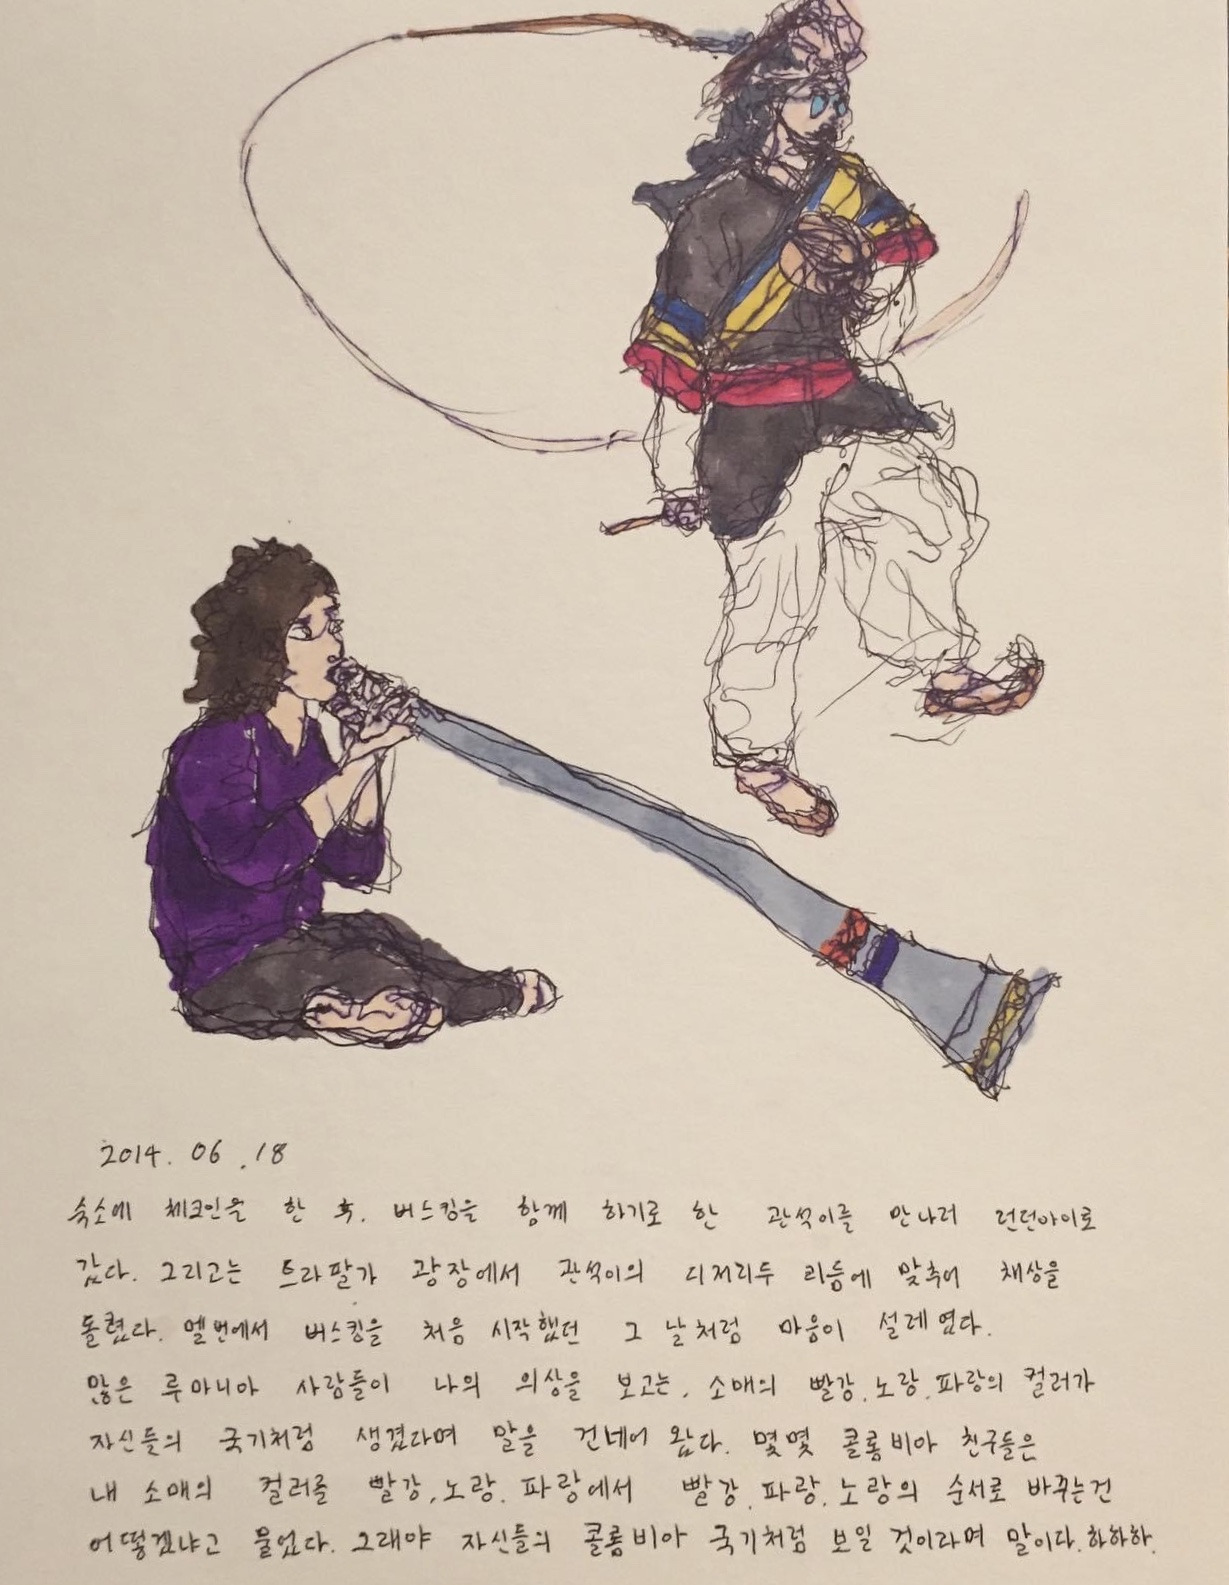 2014. 06 .18
숙소에 체크인을 한 후, 버스킹을 함께 하기로 한 관석이를 만나러 런던아이로
갔다. 그리고는 트라팔가 광장에서 관석이의 디저리두 리듬에 맞추어 채상을
돌렸다. 멜번에서 버스킹을 처음 시작했던 그 날처럼 마음이 설레였다.
많은 루마니아 사람들이 나의 의상을 보고는, 소매의 빨강, 노랑, 파랑의 컬러가
자신들의 국기처럼 생겼다며 말을 건네어 왔다. 몇몇 콜롬비아 친구들은
내 소매의 컬러를 빨강, 노랑, 파랑에서 빨강, 파랑, 노랑의 순서로 바꾸는건
어떻겠냐고 물었다. 그래야 자신들의 콜롬비아 국기처럼 보일 것이라며 말이다. 하하하.